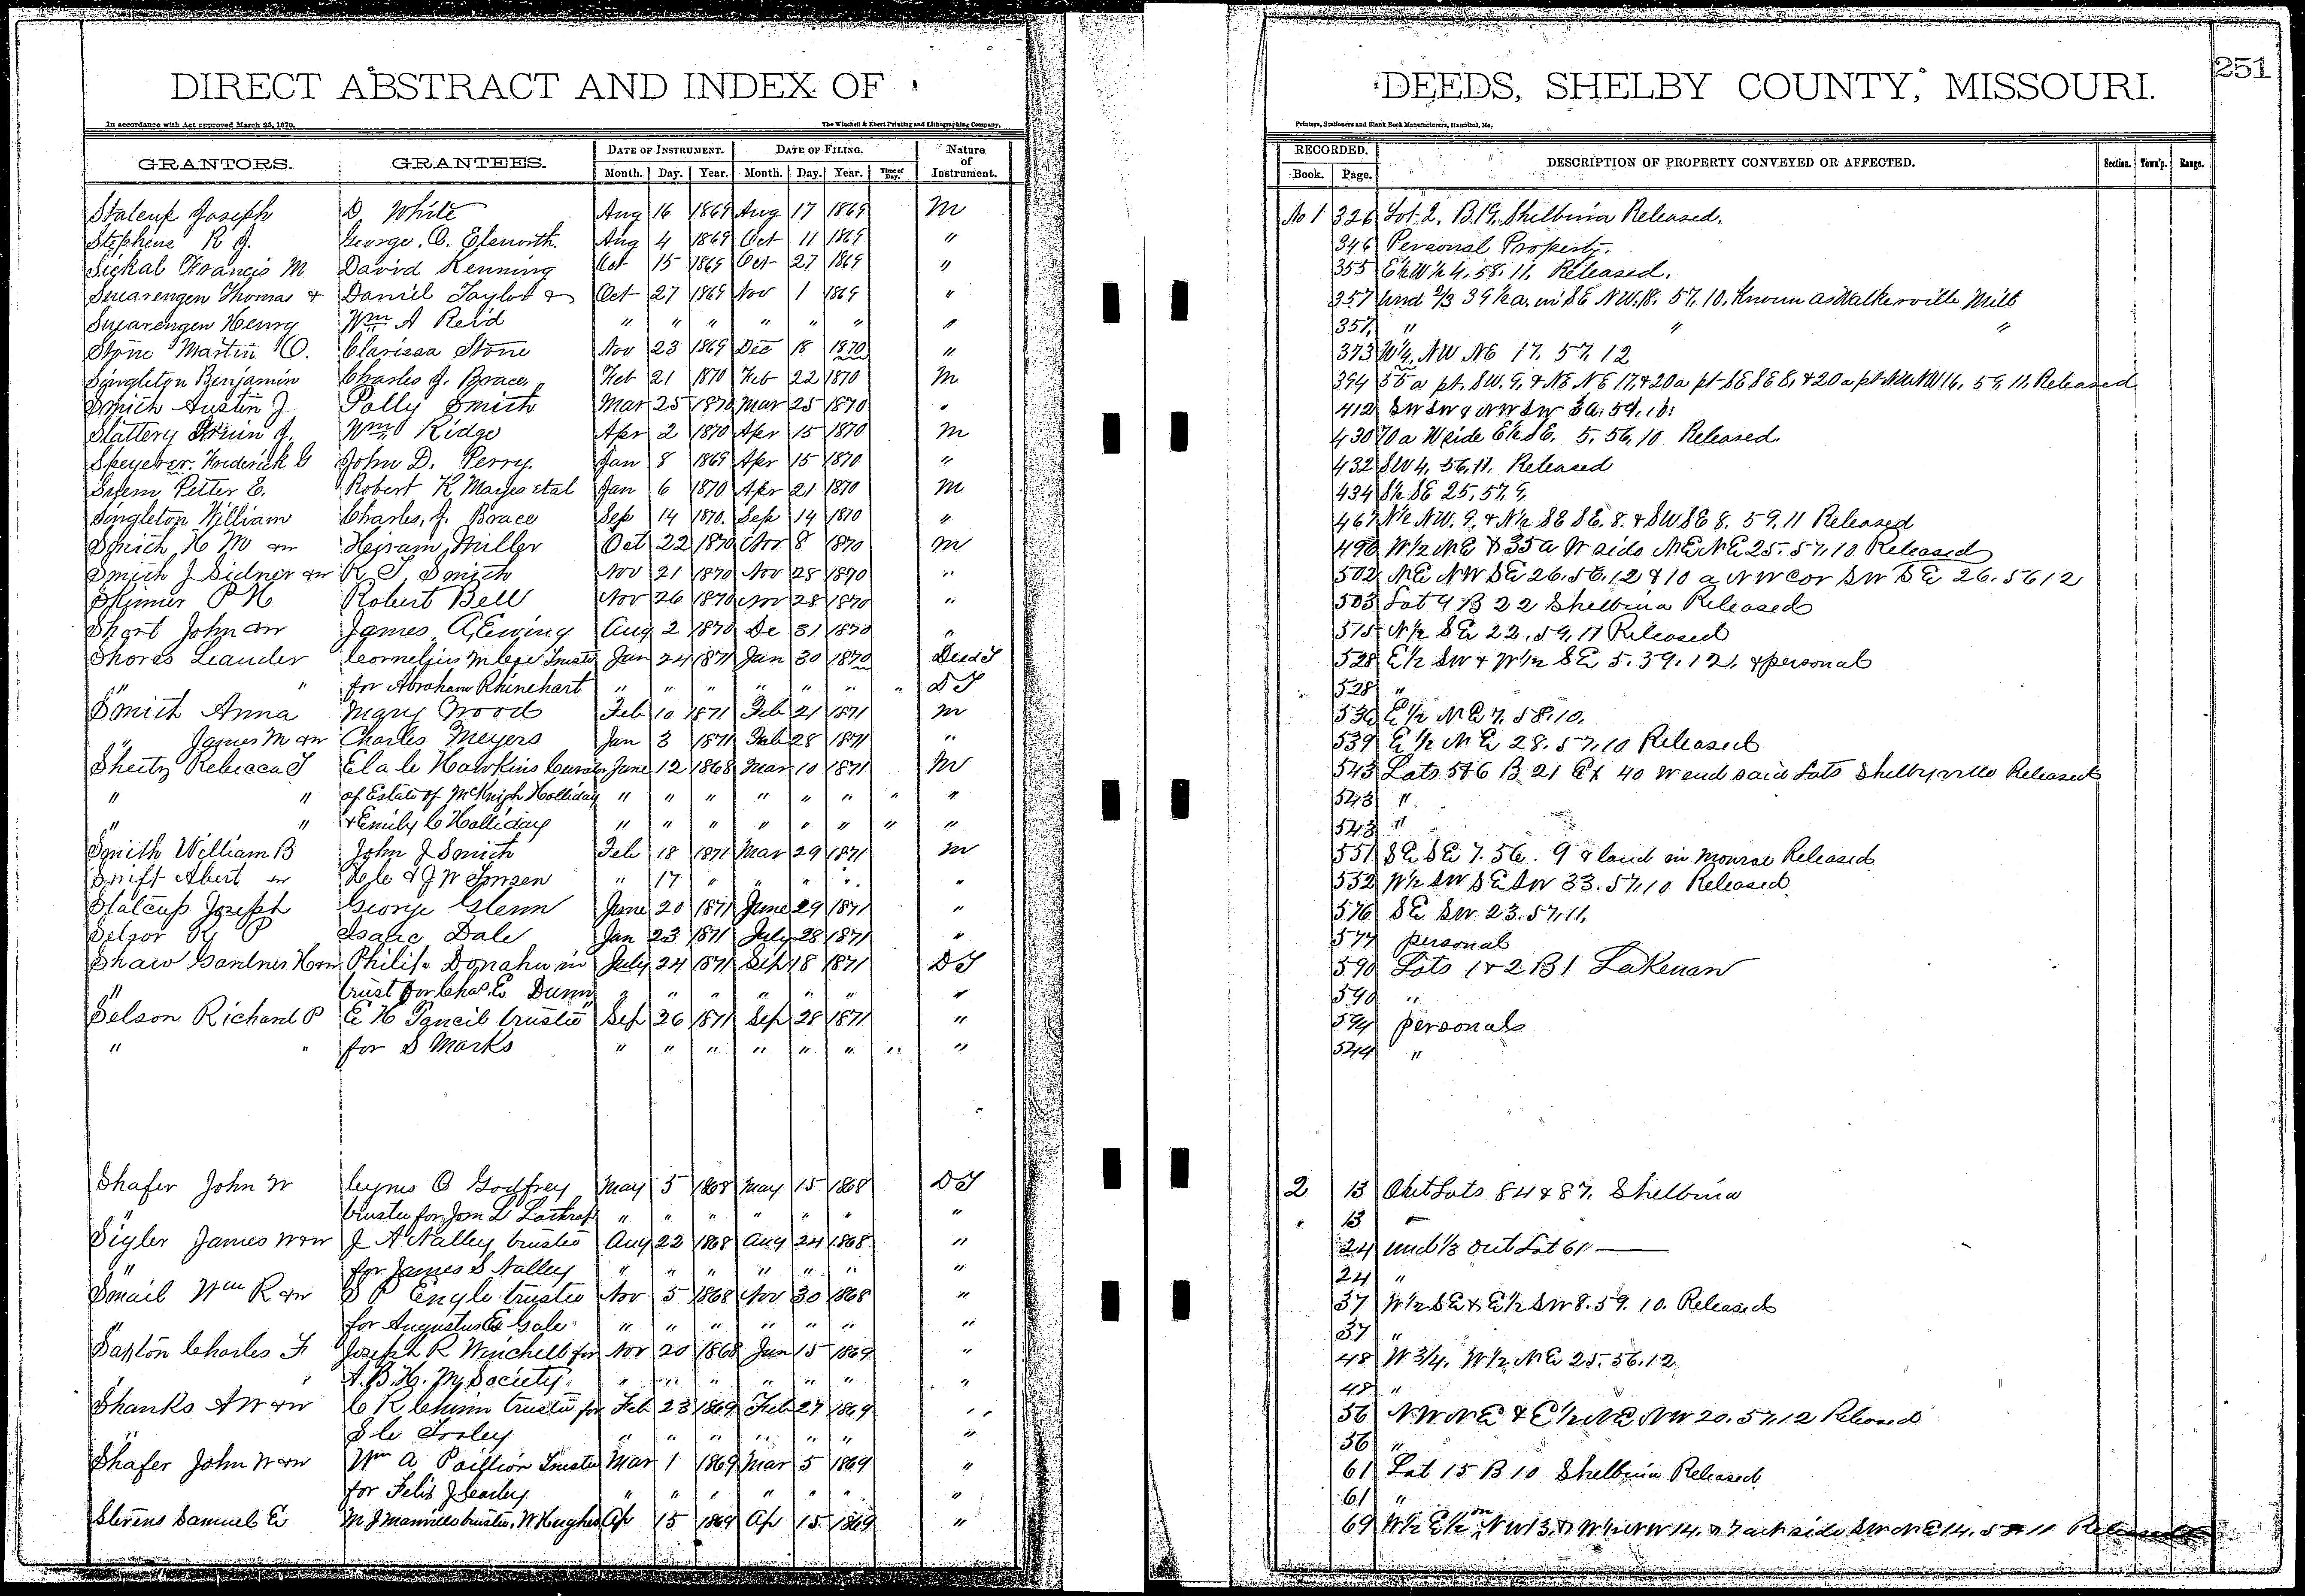 DIRECT ABSTRACT AND INDEX OF DEEDS, SHELBY COUNTY, MISSOURI. 251
In accordance with Act approved March 25, 1870. The Winchell & Ebert Printing and Lithographing Company, Printers, Stationers and Blank Book Manufacturers, Hannibal, Mo.
GRANTORS. GRANTEES. DATE OF INSTRUMENT. DATE OF FILING. Nature of Instrument. RECORDED. DESCRIPTION OF PROPERTY CONVEYED OR AFFECTED. Section. Town'p. Range.
Month. Day. Year. Month. Day. Year. Time of Day. Book. Page.
Stalcup Joseph D. White Aug 16 1869 Aug 17 1869 M No 1 326 Lot 2. B.19. Shelbina Released.
Stephens R J. George. O. Elsworth. Aug 4 1869 Oct 11 1869 " 346 Personal Property.
Sickal Francis M David Kenning Oct 15 1869 Oct 27 1869 " 355 E½W½ 4, 58. 11, Released.
Swearengen Thomas & Daniel Taylor & Oct 27 1869 Nov 1 1869 " 357 und ⅔ 39½a. in SE NW.18. 57.10. Known as Walkerville Mill
Swearengen Henry Wm A Reid " " " " " " " 357, " " "
Stone Martin O. Clarissa Stone Nov 23 1869 Dec 18 1870 " 373 W½, NW NE 17. 57. 12
Singleton Benjamin Charles J. Brace, Feb 21 1870 Feb 22 1870 M 394 55a pt. SW. 9. & NE NE 17. & 20a pt SE SE 8, & 20a pt NW NW 16, 59, 11, Released
Smith Austin J Polly Smith Mar 25 1870 Mar 25 1870 " 412 SW SW & NW SW
Slattery J. Wm Ridge Apr 2 1870 Apr 15 1870 M 430 70a W side E½ SE. 5. 56, 10 Released.
Speyerer. Frederick G John D. Perry. Jan 8 1869 Apr 15 1870 " 432 SW 4, 56, 11. Released
Petter E. Robert K Mayes et al Jan 6 1870 Apr 21 1870 M 434 S½ SE 25, 57. 9,
Singleton William Charles, J. Brace Sep 14 1870. Sep 14 1870 " 467 N½ NW. 9. & N½ SE SE. 8. & SW SE 8. 59. 11 Released
Smith H M &w Hiram Miller Oct 22 1870 Nov 8 1870 M 490 W½ NE & 35a W side NE NE 25. 57. 10 Released
Smith J Sidner &w R. T. Smith Nov 21 1870 Nov 28 1870 " 502 NE NW SE 26. 56. 12 & 10 a NW cor SW SE 26. 56 12
Skinner P H Robert Bell Nov 26 1870 Nov 28 1870 " 503 Lot 4 B 22 Shelbina Released
Short John &w James. A. Ewing Aug 2 1870 De 31 1870 " 515 N½ SE 22. 59. 11 Released
Shores Leander Cornelius Trustee Jan 24 1871 Jan 30 1870 Deed T 528 E½ SW & W½ SE 5. 59. 12. & personal
" " for Abraham Rhinehart " " " " " " " D T 528 "
Smith Anna Mary Wood Feb 10 1871 Feb 21 1871 M 536 E½ NE 7. 58. 10.
" James M &w Charles Meyers Jan 3 1871 Feb 28 1871 " 539 E½ NE 28. 57. 10 Released
Sheetz Rebecca T Ela C Hawkins Curator June 12 1868 Mar 10 1871 M 543 Lots 5&6 B 21 Ex 40 W end said Lots Shelbyville Released
" " of Estate of McKnigh Holliday " " " " " " " " 543 "
" " & Emily C Holliday " " " " " " " " 543 "
Smith William B John J Smith Feb 18 1871 Mar 29 1871 M 551 SE SE 7. 56. 9 & land in Monroe Released
Swift Abert &w & J W " 17 " " " " " 552 W½ SW SE SW 33. 57. 10 Released
Stalcup Joseph George Glenn June 20 1871 June 29 1871 " 576 SE SW. 23. 57. 11.
Selsor R P Isaac Dale Jan 23 1871 July 28 1871 " 577 personal
Shaw Gardner H &w Philip Donahu in July 24 1871 Sep 18 1871 D T 590 Lots 1 & 2 B 1 Lakenan
" trust for Chas. E Dunn " " " " " " " 590 "
Selson Richard P E H Pancil trustee Sep 26 1871 Sep 28 1871 " 594 personal
" " for S Marks " " " " " " " " 544 "
Shafer John W Cyrus O Godfrey May 5 1868 May 15 1868 D T 2 13 Out Lots 84 & 87. Shelbina
" trustee for Jon L Lathrop " " " " " " " " 13 "
Sigler James W &w J A Nalley trustee Aug 22 1868 Aug 24 1868 " 24 und ⅓ out Lot 61
" for James S Nalley " " " " " " " 24 "
Smail Wm R &w S P Engle trustee Nov 5 1868 Nov 30 1868 " 37 W½ SE & E½ SW 8. 59. 10. Released
" for Augustus E Gale " " " " " " " 37 "
Saxton Charles F Joseph R Winchell for Nov 20 1868 Jan 15 1869 " 48 W ¾. W½ NE 25. 56. 12
" A. B. H. M. Society " " " " " " " 48 "
Shanks A W &w C K Chinn trustee for Feb 23 1869 Feb 27 1869 " 56 NW NE & E½ NE NW 20. 57. 12 Released
" S C Tooley " " " " " " " 56 "
Shafer John W &w Wm A Trustee Mar 1 1869 Mar 5 1869 " 61 Lot 15 B 10 Shelbina Released
for Felix J " " " " " " " 61 "
Stevens Samuel E M J Manville trustee. W Hughes Ap 15 1869 Ap 15 1869 " 69 W½ E½ on NW 13. & W½ NW 14. & 7 a side SW NE 14. 11